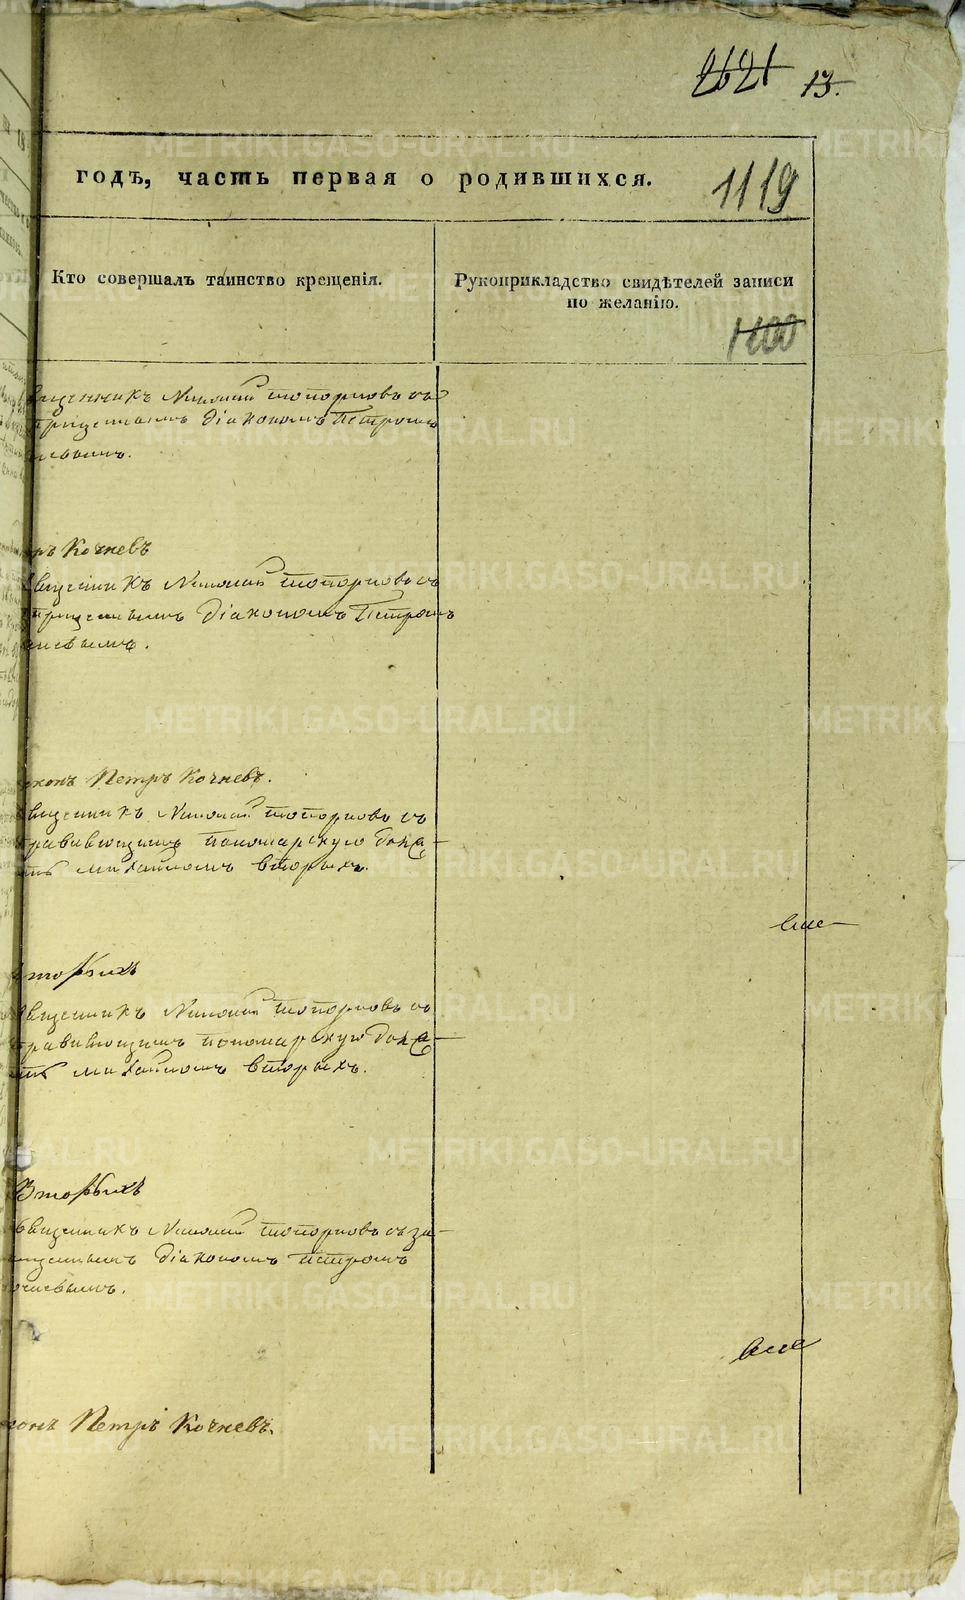 2621 13.
годъ, часть первая о родившихся. 1119
Кто совершалъ таинство крещенія.
Рукоприкладство свидѣтелей записи
по желанію.
1100
вященникъ Николай Топорковъ съ
Діакономъ Петромъ
ръ Кочневъ
вященникъ Николай Топорковъ съ
Діакономъ Петромъ
конъ Петръ Кочневъ.
вященникъ Николай Топорковъ съ
правляющимъ пономарскую
Михайломъ Вторыхъ.
Вторыхъ
вященникъ Николай Топорковъ съ
правляющимъ пономарскую
Михайломъ Вторыхъ.
Вторыхъ
Священникъ Николай Топорковъ съ
Діакономъ Петромъ
очневымъ.
конъ Петръ Кочневъ.
METRIKI.GASO-URAL.RU